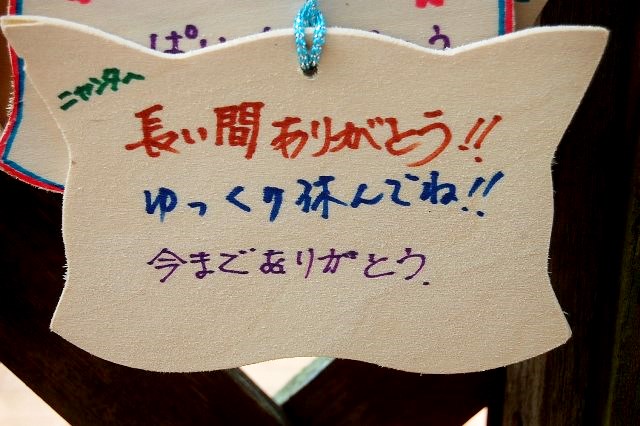 ニャンタへ
長い間ありがとう!!
ゆっくり休んでね!!
今までありがとう.